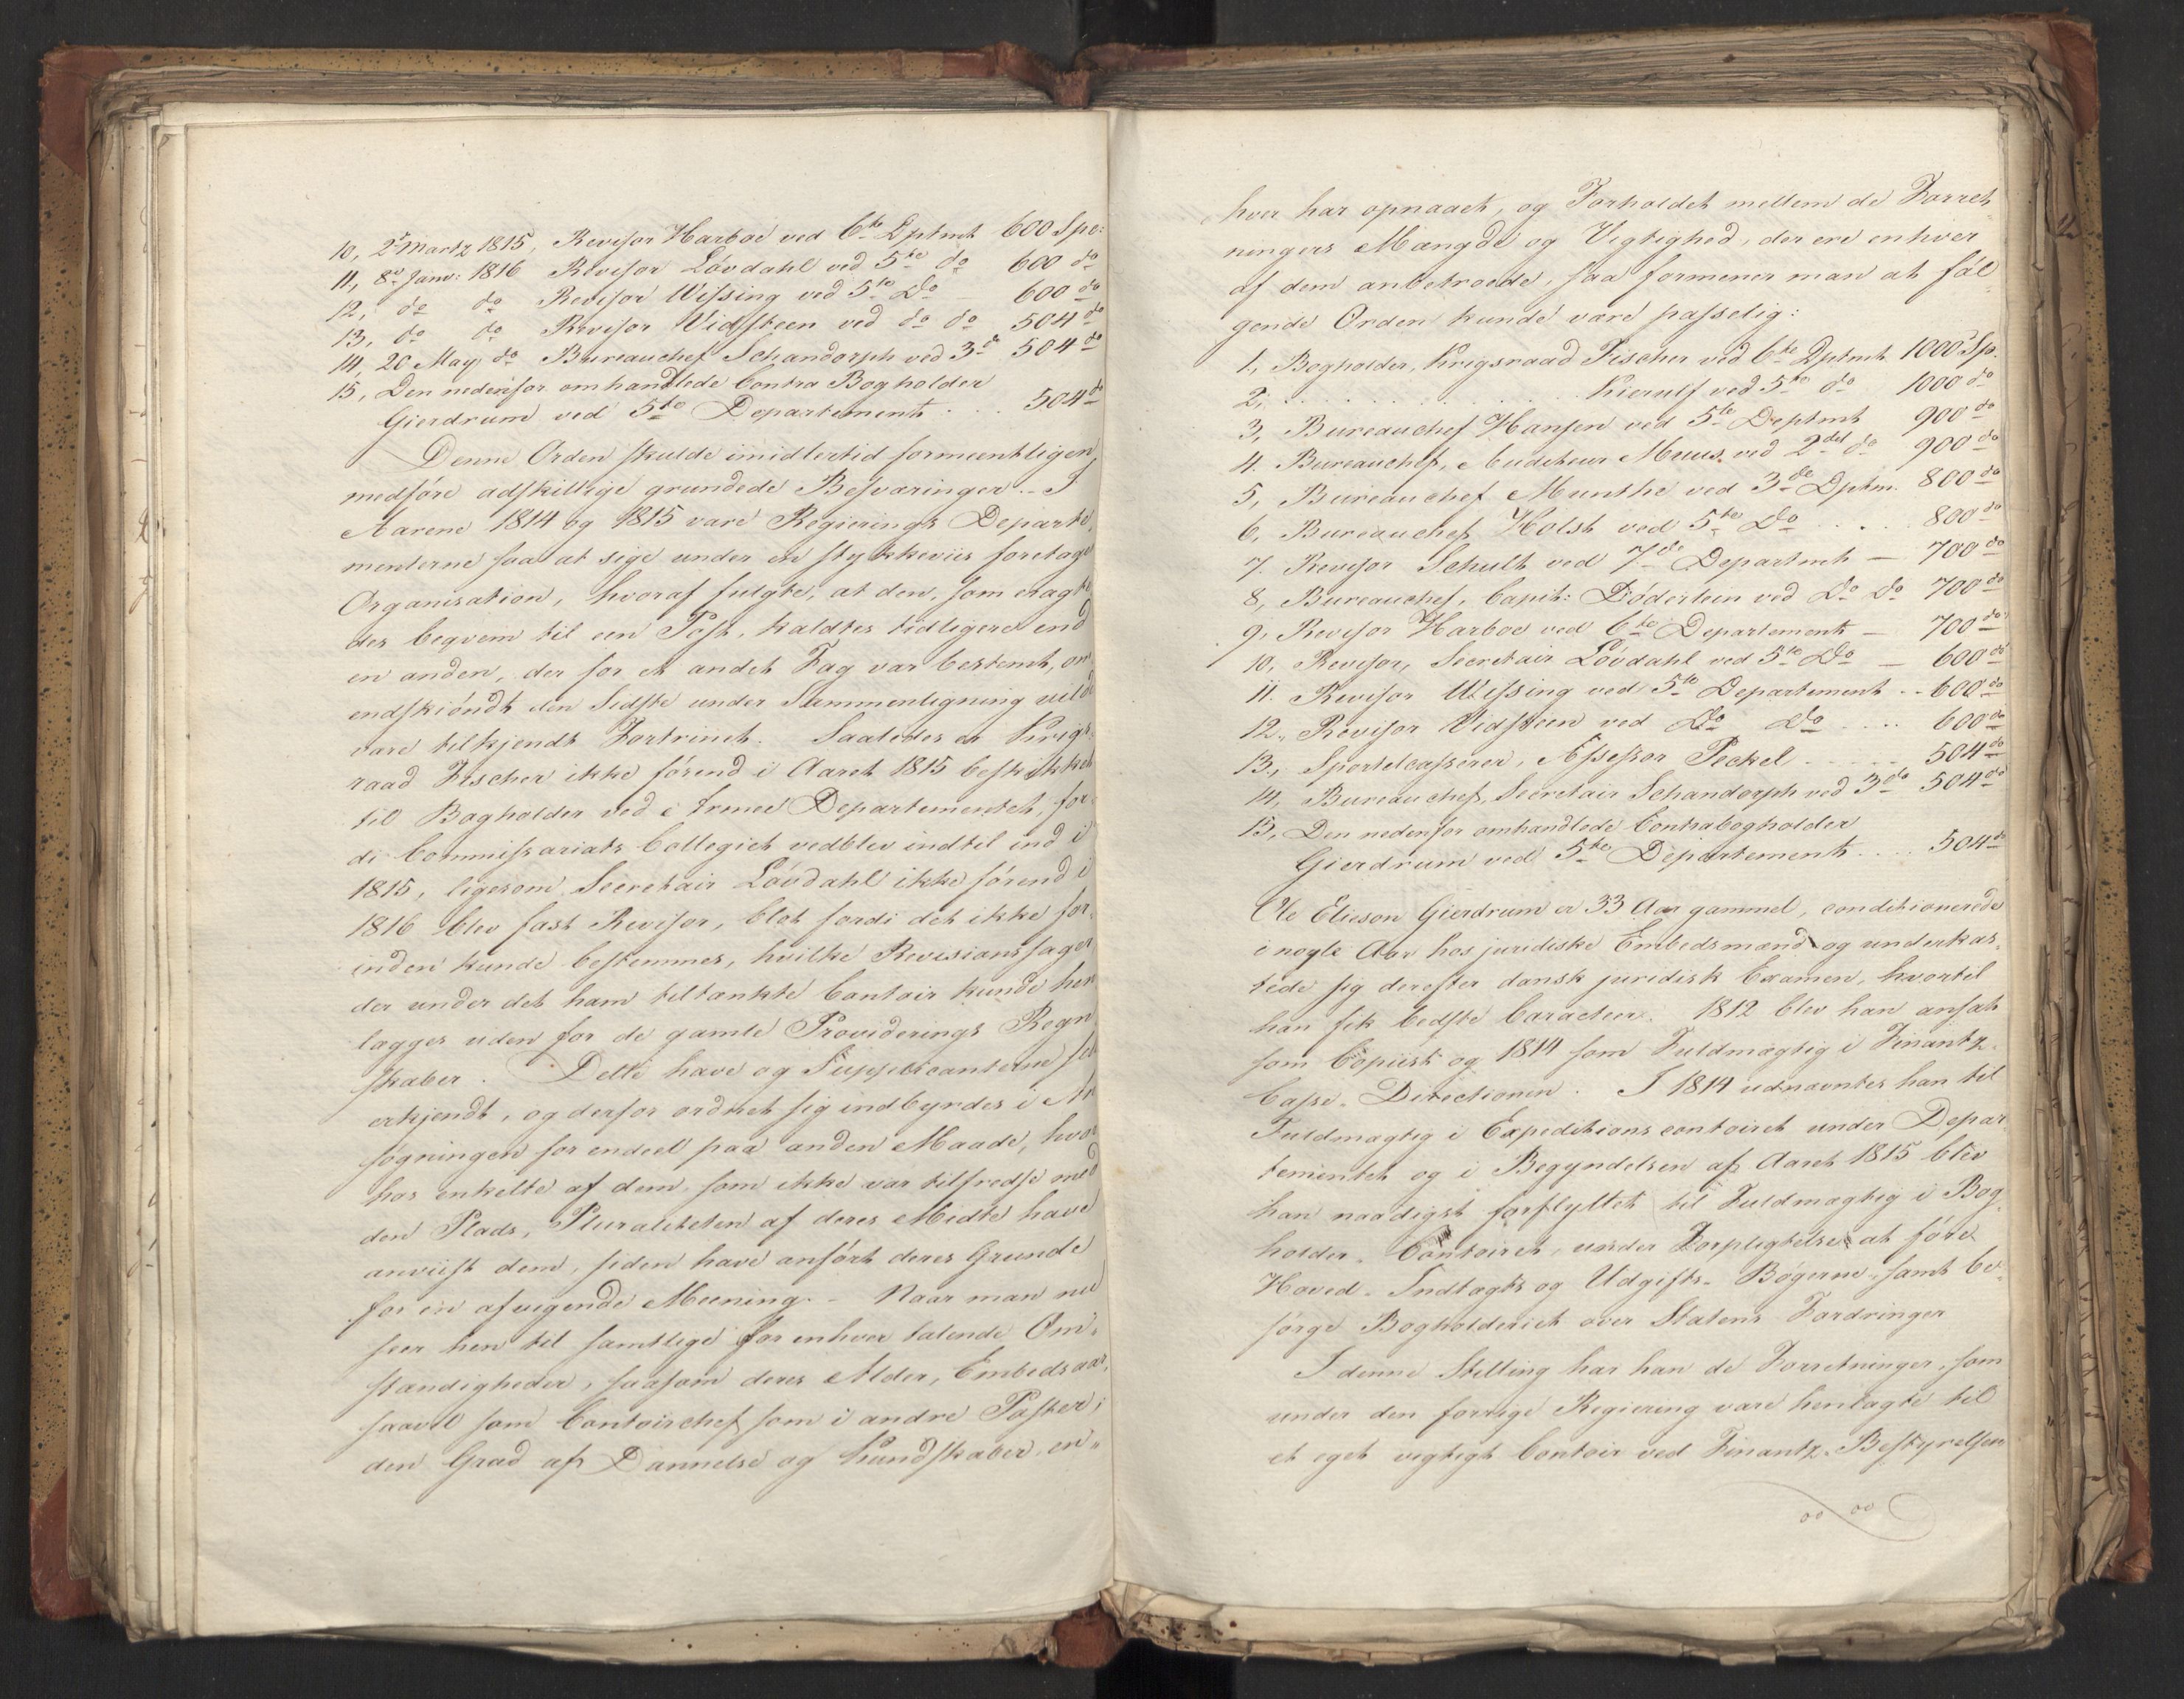 10, 2d Martz 1815, Revisor Harboe ved 6te Dptmt 600 Spe:
11, 8de Janv: 1816 Revisor Lövdahl ved 5te do 600 do
12, do do Revisor Wissing ved 5te Do 600 do
13, do do Revisor Vidsteen ved do do 504 do
14, 20 May do Bureauchef Schandorph ved 3de 504 do
15, Den nedenfor omhandlede Contra Bogholder
Gierdrum ved 5te Departement . . . 504 do
Denne Orden skulde imidlertid formeentligen
medföre adskillige grundede Besværinger. – I
Aarene 1814 og 1815 vare Regierings Departe-
menterne saa at sige under en stykkeviis foretagen
Organisation, hvoraf fulgte, at den, som eragte-
des beqvem til een Post, kaldtes tidligere end
en anden, der for et andet Fag var bestemt, om
endskiöndt den Sidste under Sammenligning vilde
være tilkjendt Fortrinet. Saaledes er Krigs-
raad Fischer ikke förend i Aaret 1815 beskikket
til Bogholder ved Armee Departementet, for-
di Commissariats Collegiet vedblev indtil ind i
1815, ligesom Secretair Lövdahl ikke förend i
1816 blev fast Revisor, blot fordi det ikke for-
inden kunde bestemmes, hvilke Revisionssager
der under det ham tiltænkte Contoir kunde hen-
lægges uden for de gamle Providerings Regn-
skaber. Dette have og Supplicanterne selv
erkjendt, og derfor ordnet sig indbyrdes i An-
sögningen for endeel paa anden Maade, hvor-
hos enkelte af dem, som ikke var tilfredse med
den Plads, Pluraliteten af deres Midte have
anviist dem, siden have anfört deres Grunde
for en afvigende Meening. – Naar man nu
seer hen til samtlige for enhver talende Om-
stændigheder, saasom deres Alder, Embedsaar,
saavel som Contoirchef som i andre Poster;
den Grad af Dannelse og Kundskaber en-
hver har opnaaet, og Forholdet mellem de Forret-
ningers Mængde og Vigtighed, der ere enhver
af dem anbetroede, saa formener man at föl-
gende Orden kunde være passelig:
1, Bogholder, Krigsraad Fischer ved 6te Dptmt 1000 Sp.
2, . . . . . . Kierulf ved 5te do 1000 do
3, Bureauchef Hansen ved 5te Deptmt 900 do
4. Bureauchef, Auditeur Muus ved 2det do 900 do
5, Bureauchef Munthe ved 3de Dptm. 800 do
6, Bureauchef Holst ved 5te Do . . . . 800 do
7. Revisor Schult ved 7de Departmt — 700 do
8, Bureauchef, Capit: Döderlein ved Do Do 700 do
9, Revisor Harboe ved 6te Departement — 700 do
10, Revisor, Secretair Lövdahl ved 5te Do — 600 do
11. Revisor Wissing ved 5te Departement . . 600 do
12, Revisor Vidsteen ved Do Do . . . . 600 do
13, Sportelcasserer, Assessor Peckel . . . . . 504 do
14, Bureauchef, Secretair Schandorph ved 3de 504 do
15, Den nedenfor omhandlede Contrabogholder
Gierdrum ved 5te Departement . . . . 504 do
Ole Elieson Gierdrum er 33 Aar gammel, conditionerede
i nogle Aar hos juridiske Embedsmænd og underkas-
tede sig derefter dansk juridisk Examen, hvortil
han fik bedste Caracteer. 1812 blev han ansat
som Copiist og 1814 som Fuldmægtig i Finantz-
Casse-Directionen. I 1814 udnævntes han til
Fuldmægtig i Expeditionscontoiret under Depar-
tementet og i Begyndelsen af Aaret 1815 blev
han naadigst forflyttet til Fuldmægtig i Bog-
holder-Contoiret, under Forpligtelse at före
Hoved-Indtægts og Udgifts-Bögerne, samt be-
sörge Bogholderiet over Statens Fordringer
I denne Stilling har han de Forretninger, som
under den forrige Regiering vare henlagte til
et eget vigtigt Contoir ved Finantz-Bestyrelsen